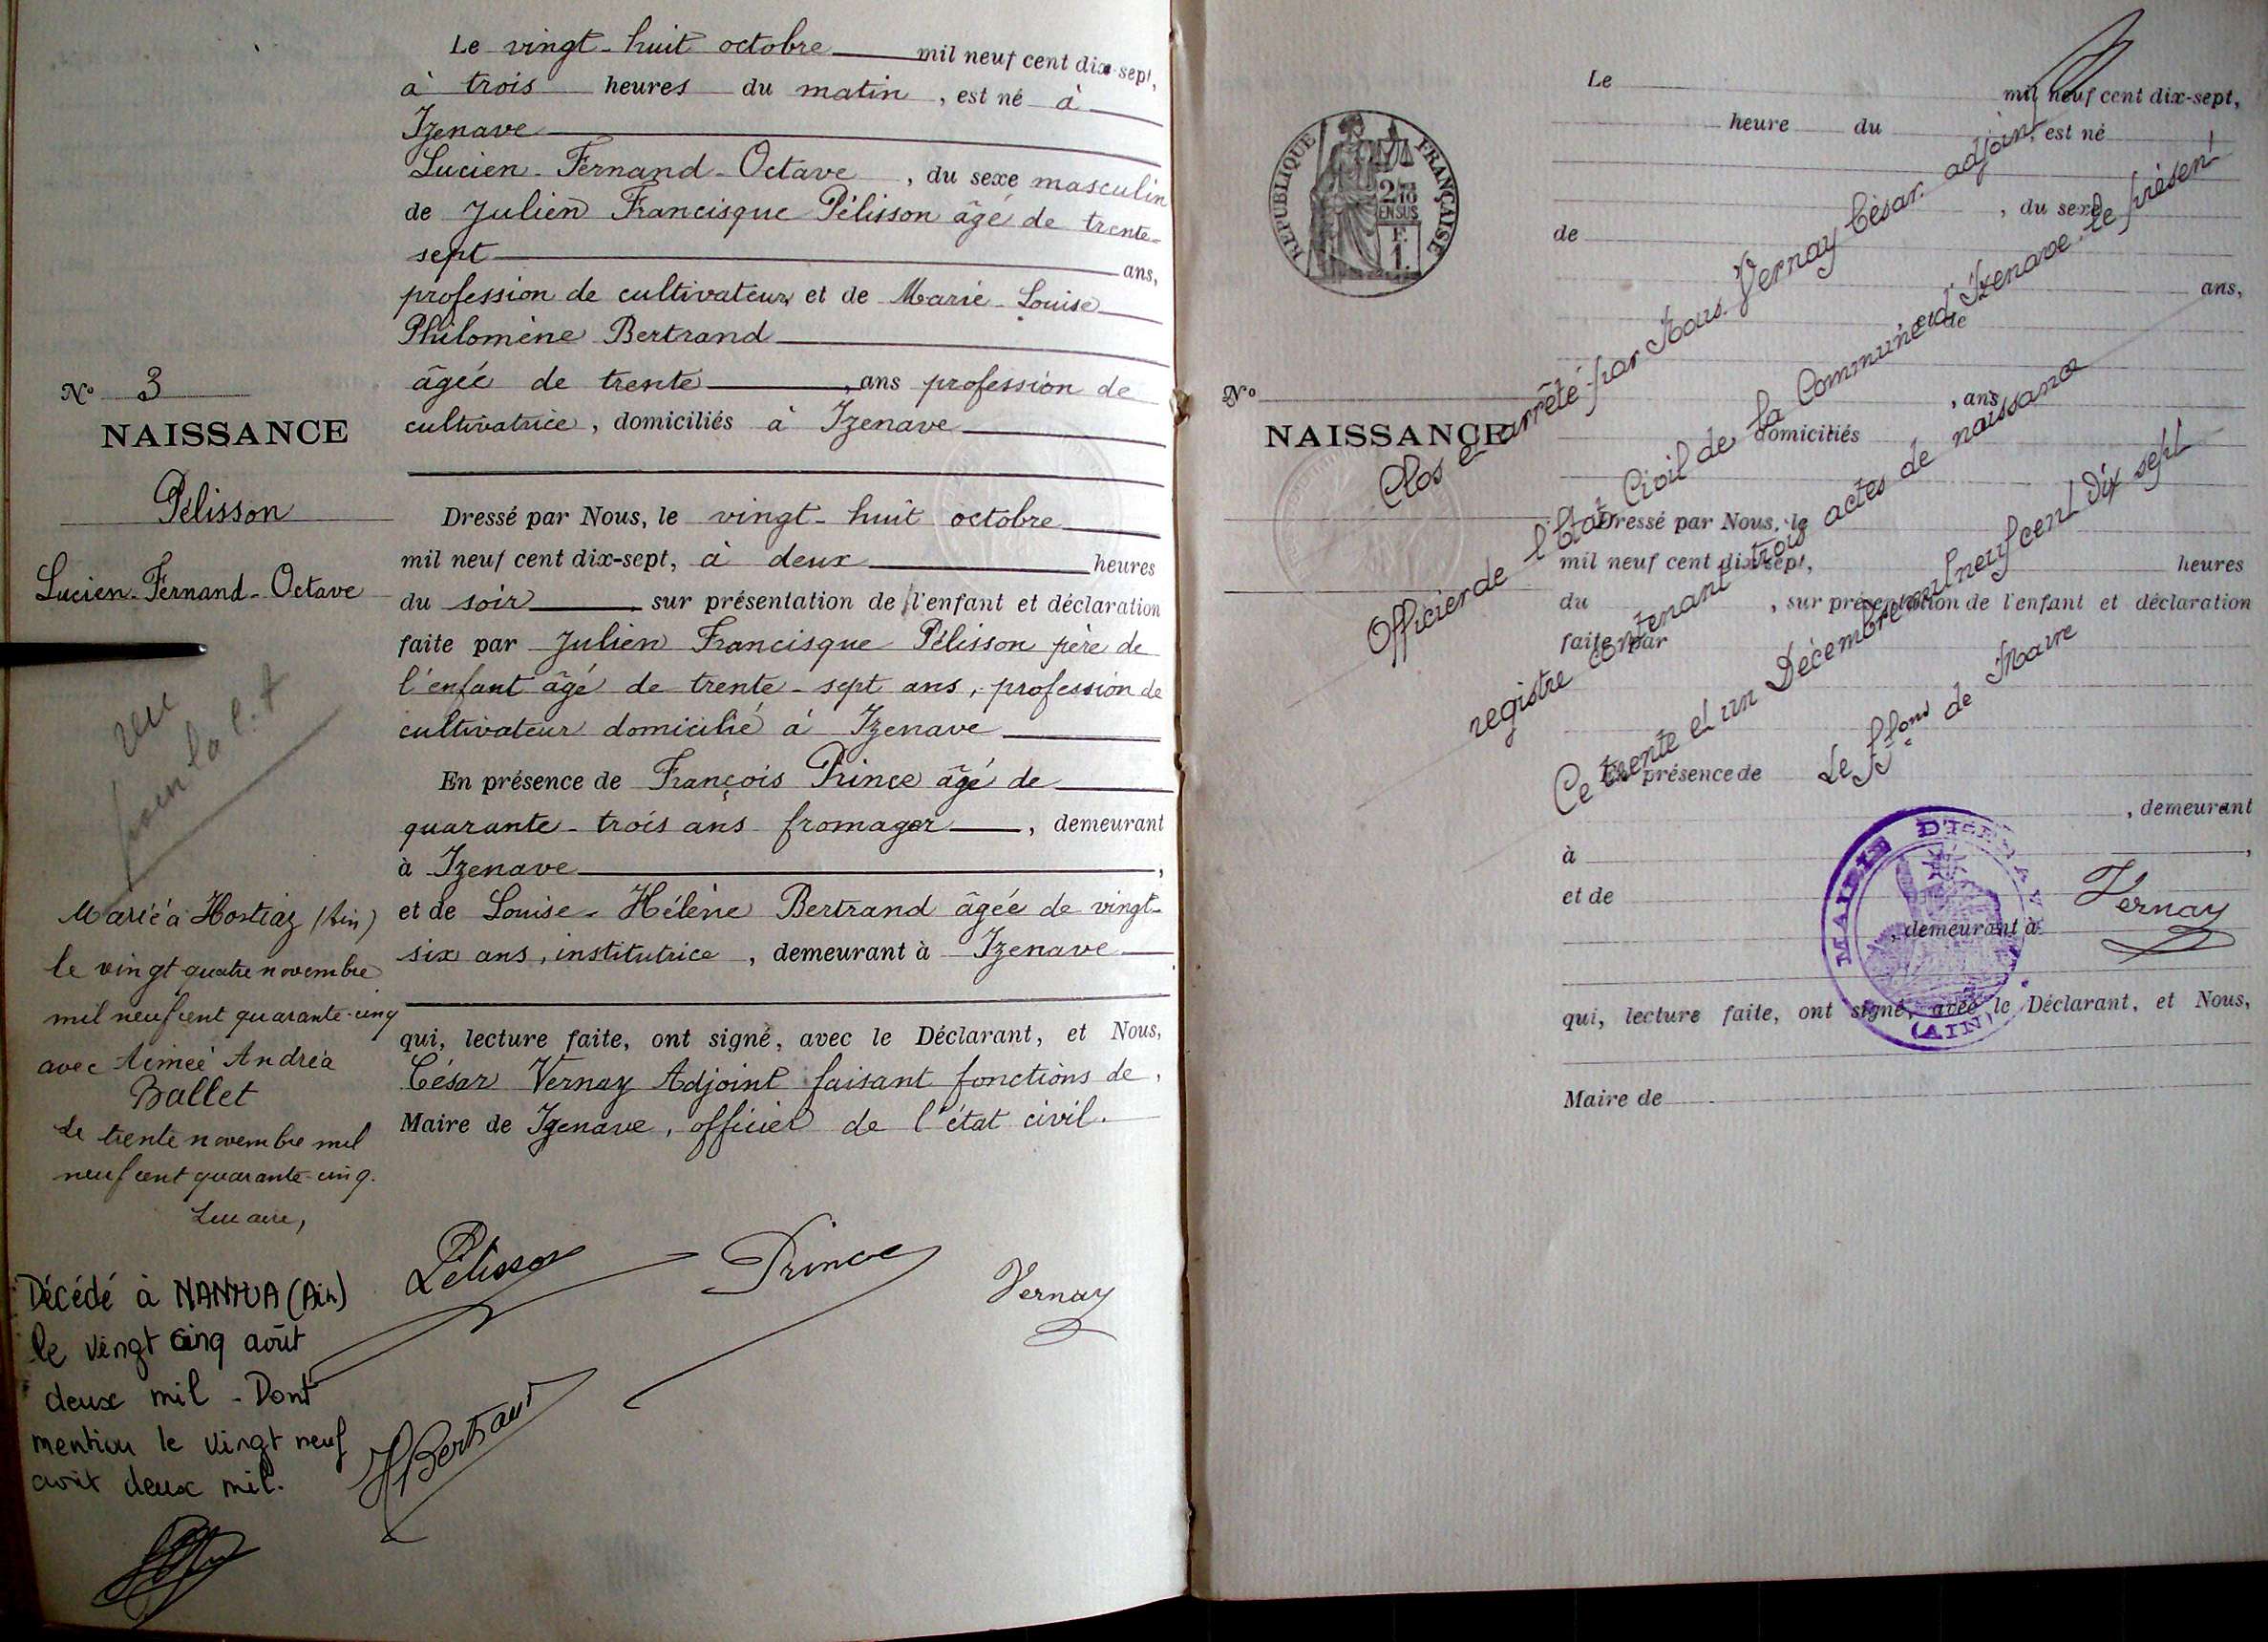 Le vingt-huit octobre mil neuf cent dix-sept,
à trois heures du matin, est né à
Izenave
Lucien-Fernand-Octave, du sexe masculin
de Julien Francisque Pélisson âgé de trente-
sept ans,
profession de cultivateur et de Marie-Louise
Philomène Bertrand
âgée de trente, ans profession de
cultivatrice, domiciliés à Izenave
No 3
NAISSANCE
Pélisson
Lucien-Fernand-Octave
Dressé par Nous, le vingt-huit octobre
mil neuf cent dix-sept, à deux heures
du soir, sur présentation de l'enfant et déclaration
faite par Julien Francisque Pélisson père de
l'enfant âgé de trente-sept ans, profession de
cultivateur domicilié à Izenave
En présence de François Prince âgé de
quarante-trois ans fromager, demeurant
à Izenave,
et de Louise-Hélène Bertrand âgée de vingt-
six ans, institutrice, demeurant à Izenave
qui, lecture faite, ont signé, avec le Déclarant, et Nous,
César Vernay Adjoint faisant fonctions de
Maire de Izenave, officier de l'état civil.
Pélisson
Prince
Vernay
HBertrand
vu
pour la
Marié à Hostiaz (Ain)
le vingt quatre novembre
mil neuf cent quarante-cinq
avec Aimée Andréa
Ballet
Le trente novembre mil
neuf cent quarante-cinq.
Le maire,
Décédé à NANTUA (Ain)
le vingt cinq août
deux mil - Dont
mention le vingt neuf
août deux mil.
RÉPUBLIQUE FRANÇAISE
2/10
EN SUS
F.
1.
No
NAISSANCE
Le mil neuf cent dix-sept,
heure du, est né
, du sexe
de
ans,
et de
, ans
domiciliés
Dressé par Nous, le
mil neuf cent dix-sept, heures
du, sur présentation de l'enfant et déclaration
faite par
En présence de
, demeurant
à,
et de
, demeurant à
qui, lecture faite, ont signé, avec le Déclarant, et Nous,
Maire de
Clos et arrêté par Nous Vernay César adjoint
Officier de l'Etat Civil de la Commune d'Izenave le présent
registre contenant trois actes de naissance
Ce trente et un Décembre mil neuf cent Dix sept
Le ff.ons de Maire
Vernay
MAIRIE D'IZENAVE
(AIN)